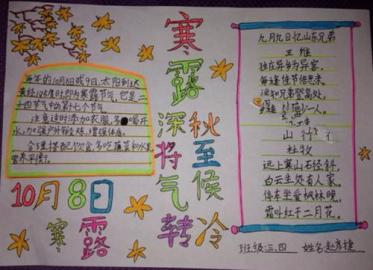 每年的10月8日或9日,太阳到达
黄经195度时即为寒露节气,它是二
十四节气中的第十七个节
气
注意适时添加衣服,多喝开
水,加强户外锻炼,增强体质。
合理搭配饮食,多吃蔬菜和水果,
营养平衡。
10月8日
寒露
寒露
深秋
将至
气候
转冷
九月九日忆山东兄弟
王维
独在异乡为异客,
每逢佳节倍思亲。
遥知兄弟登高处,
遍插茱萸少一人。
山行
杜牧
远上寒山石径斜,
白云生处有人家。
停车坐爱枫林晚,
霜叶红于二月花。
班级:三.四 姓名:赵彦捷